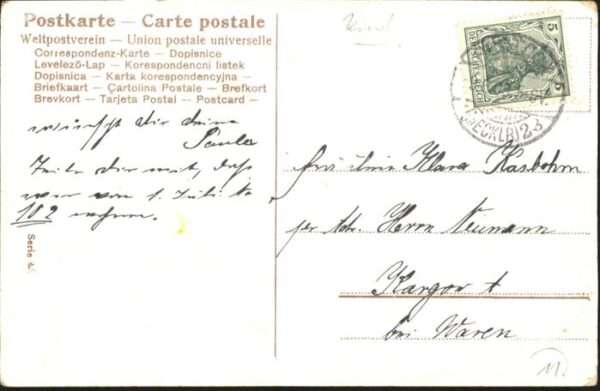 Postkarte — Carte postale
Weltpostverein — Union postale universelle
Correspondenz-Karte — Dopisnice
Levelező-Lap — Korespondencni listek
Dopisnica — Karta korespondencyjna —
Briefkaart — Cartolina Postale — Brefkort
Brevkort — Tarjeta Postal — Postcard —
wünscht dir deine
Paula
Teile dir mit, daß
wir vom 1. Juli No
102 wohnen.
Serie
5
5
DEUTSCHES REICH
(MECKLB) 23
Fräulein Klara Kasbohm
per Adr. Herrn Neumann
Kargow
bei Waren
11.